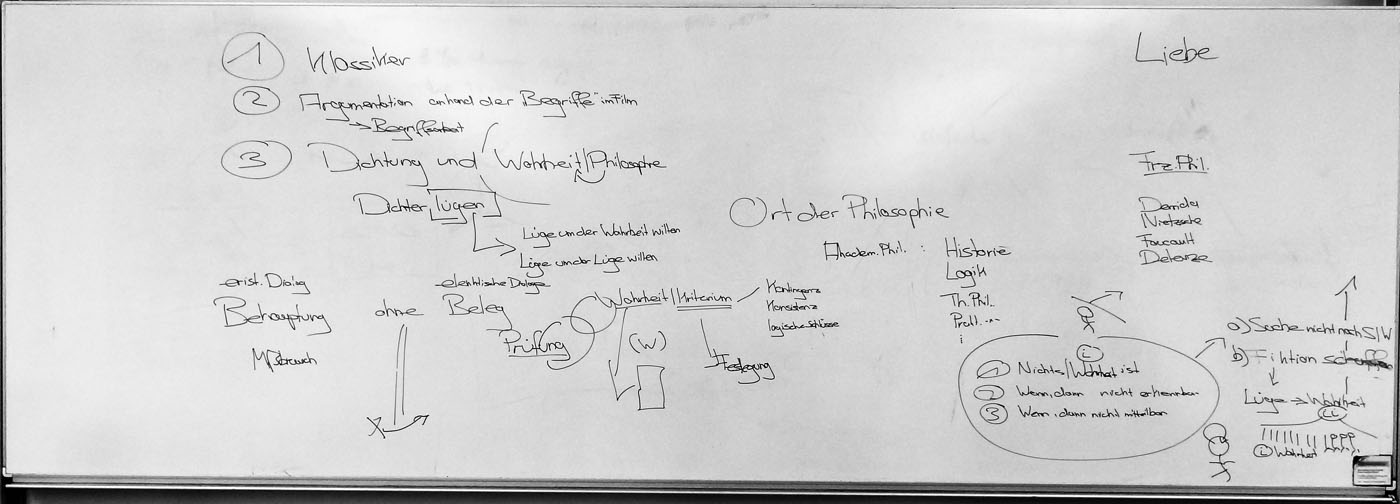 1 Klassiker
2 Argumentation anhand der "Begriffe" im Film
→ Begriffsarbeit
3 Dichtung und Wahrheit/Philosophie
Dichter lügen
Lüge um der Wahrheit willen
Lüge um der Lüge willen
erist. Dialog
Behauptung ohne
Missbrauch
elenktische Dialoge
Beleg
Prüfung
Wahrheit/Kriterium
Kontingenz
Konsistenz
logische Schlüsse
(W)
Festlegung
Ort der Philosophie
Akadem. Phil. : Historie
Logik
Th. Phil.
Prakt. ...
Liebe
Frz. Phil.
Derrida
Nietzsche
Foucault
Deleuze
1 Nichts/Wahrheit ist
2 Wenn, dann nicht erkennbar
3 Wenn, dann nicht mittelbar
a) Suche nicht nach S/W
b) Fiktion
Lüge → Wahrheit
LL
L Wahrheit